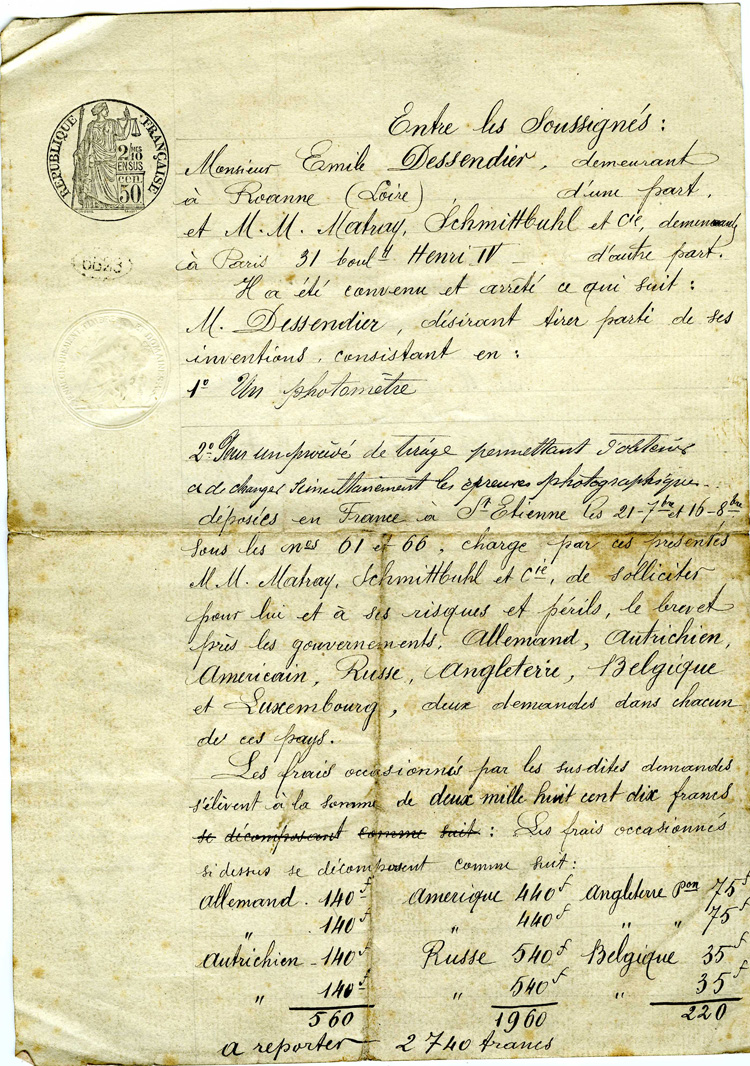 RÉPUBLIQUE FRANÇAISE
2/10es
EN SUS
cen
50
Entre les Soussignés :
Monsieur Emile Dessendier, demeurant
à Roanne (Loire), d'une part,
et M. M. Matray, Schmittbuhl et Cie, demeurant
à Paris 31 boul^d Henri IV _ d'autre part.
Il a été convenu et arrêté ce qui suit :
M. Dessendier, désirant tirer parti de ses
inventions, consistant en :
1° Un photomètre
2° de tirage permettant d'obtenir
simultanément les épreuves photographique
déposées en France à St Etienne les 21-7bre et 16-8bre
sous les nos 61 et 66, charge par ces présentes
M M. Matray, Schmittbuhl et Cie, de solliciter
pour lui et à ses risques et périls, le brevet
près les gouvernements, Allemand, Autrichien,
Américain, Russe, Angleterre, Belgique
et Luxembourg, deux demandes dans chacun
de ces pays.
Les frais occasionnés par les susdites demandes
s'élèvent à la somme de deux mille huit cent dix francs
se décomposant comme suit : Les frais occasionnés
si dessus se décomposent comme suit :
Allemand . 140f Amerique 440f Angleterre Pon 75f
" 140f " 440f " " 75f
Autrichien - 140f Russe 540f Belgique 35f
" 140f " 540f " 35f
560 1960 220
A reporter 2740 francs